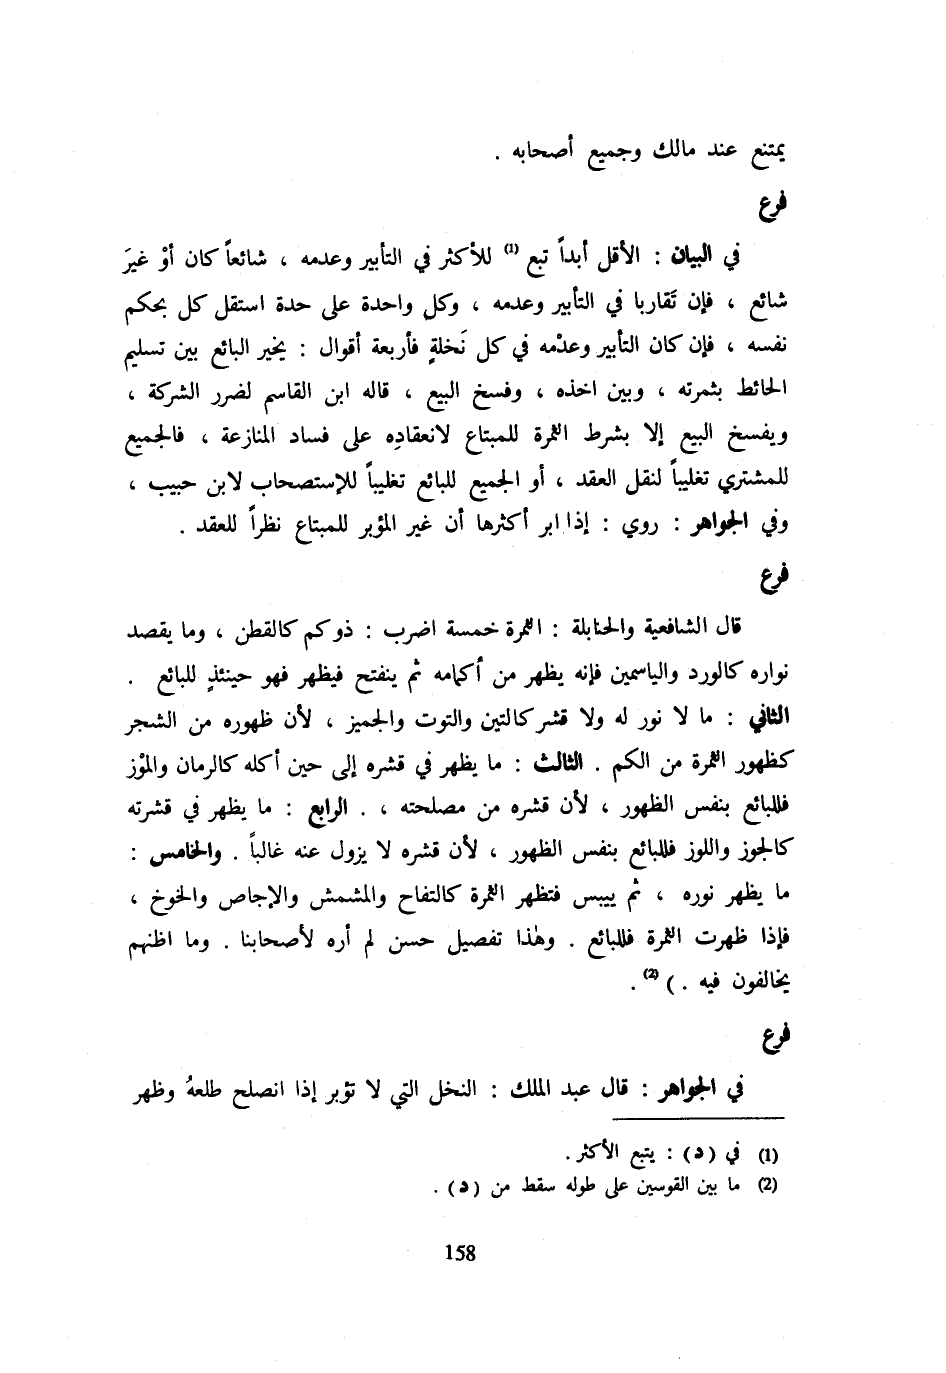 يمتنع عند مالك وجميع أصحابه .
فرع
في البيان : الأقل أبداً تبع (1) للأكثر في التأبير وعدمه ، شائعاً كان أوْ غيرَ
شائع ، فإن تَقاربا في التأبير وعدمه ، وكل واحدة على حدة استقل كل بحكم
نفسه ، فإن كان التأبير وعدْمه في كل نَخلةٍ فأربعة أقوال : يخير البائع بين تسليم
الحائط بثمرته ، وبين اخذه ، وفسخ البيع ، قاله ابن القاسم لضرر الشركة ،
ويفسخ البيع إلا بشرط الثمرة للمبتاع لانعقادِه على فساد المنازعة ، فالجميع
للمشتري تغليباً لنقل العقد ، أو الجميع للبائع تغليباً للإستصحاب لابن حبيب ،
وفي الجواهر : روي : إذا ابر أكثرها أن غير المؤبر للمبتاع نظراً للعقد .
فرع
قال الشافعية والحنابلة : الثمرة خمسة اضرب : ذو كم كالقطن ، وما يقصد
نواره كالورد والياسمين فإنه يظهر من أكمامه ثم ينفتح فيظهر فهو حينئذٍ للبائع .
الثاني : ما لا نور له ولا قشر كالتين والتوت والجميز ، لأن ظهوره من الشجر
كظهور الثمرة من الكم . الثالث : ما يظهر في قشره إلى حين أكله كالرمان والموْز
فللبائع بنفس الظهور ، لأن قشره من مصلحته ، . الرابع : ما يظهر في قشرته
كالجوز واللوز فللبائع بنفس الظهور ، لأن قشره لا يزول عنه غالباً . والخامس :
ما يظهر نوره ، ثم ييبس فتظهر الثمرة كالتفاح والمشمش والإجاص والخوخ ،
فإذا ظهرت الثمرة فللبائع . وهٰذا تفصيل حسن لم أره لأصحابنا . وما اظنهم
يخالفون فيه . ) (2) .
فرع
في الجواهر : قال عبد الملك : النخل التي لا تؤبر إذا انصلح طلعهُ وظهر
(1) في (د) : يتبع الأكثر .
(2) ما بين القوسين على طوله سقط من (د) .
158